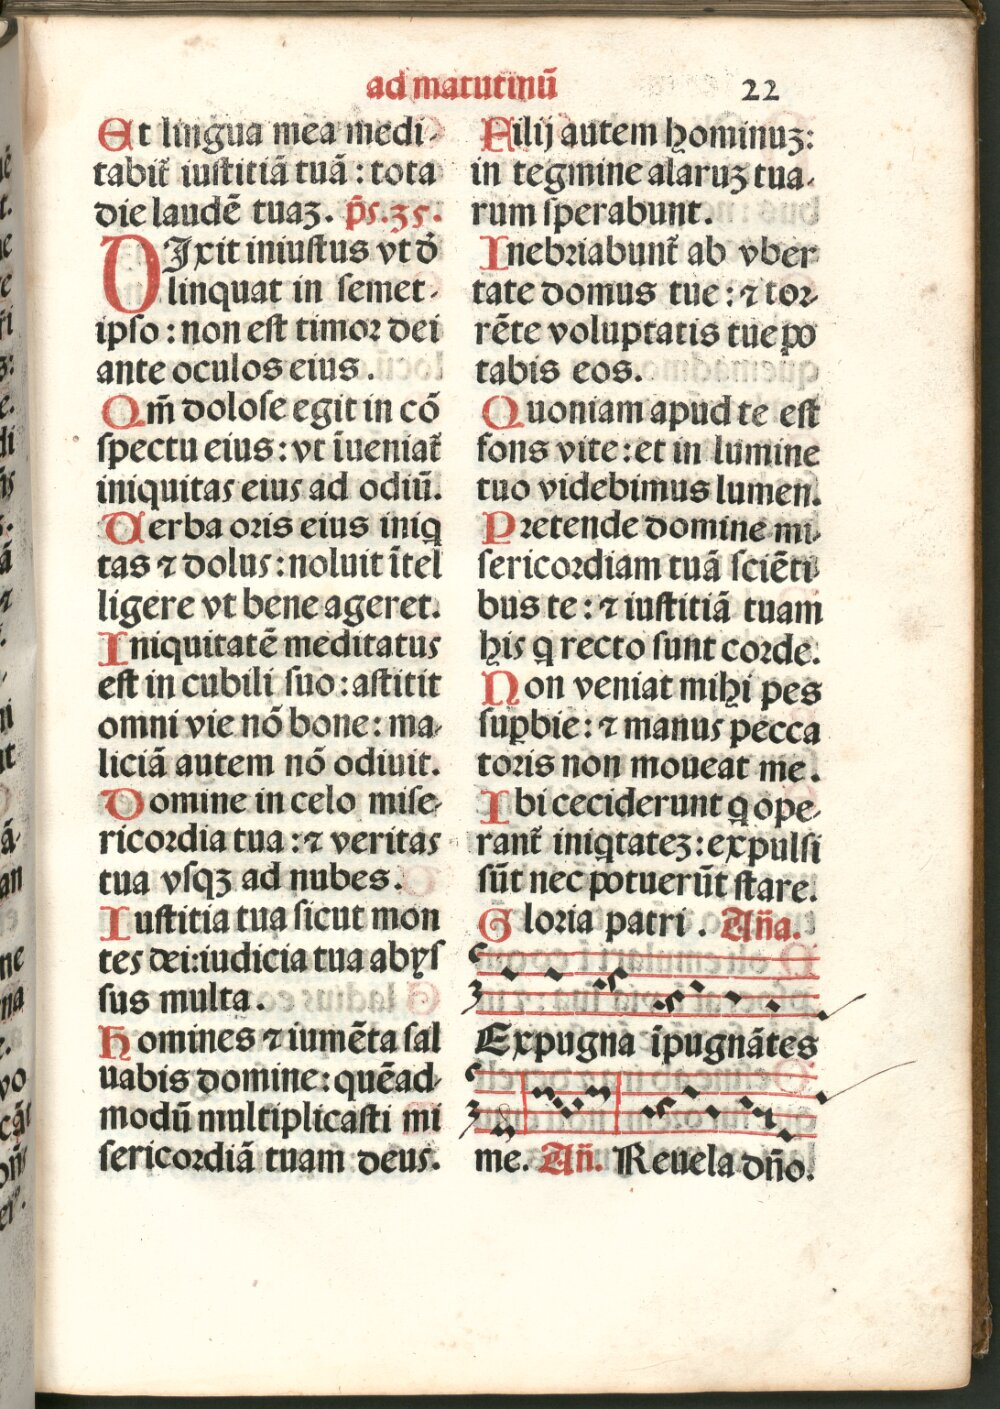 ad matutinū
22
Et lingua mea medi-
tabit̃ iustitiā tuā : tota
die laudē tuaꝫ. p̄s. 35.
DIxit iniustus vt đ
linquat in semet-
ipso : non est timoꝛ dei
ante oculos eius.
Qm̄ dolose egit in cō
spectu eius : vt īueniat̃
iniquitas eius ad odiū.
Uerba oris eius iniq
tas ⁊ dolus : noluit ītel
ligere vt bene ageret.
Iniquitatē meditatus
est in cubili suo : astitit
omni vie nō bone : ma-
liciā autem nō odiuit.
Domine in celo mise-
ricoꝛdia tua : ⁊ veritas
tua vsqꝫ ad nubes.
Iustitia tua sicut mon
tes dei : iudicia tua abys
sus multa.
Homines ⁊ iumēta sal
uabis domine : quēad-
modū multiplicasti mi
sericoꝛdiā tuam deus.
Filij autem hominuꝫ :
in tegmine alaruꝫ tua-
rum sperabunt.
Inebꝛiabunt̃ ab vber
tate domus tue : ⁊ toꝛ-
rēte voluptatis tue po
tabis eos.
Quoniam apud te est
fons vite : et in lumine
tuo videbimus lumen.
Pꝛetende domine mi-
sericoꝛdiam tuā sciēti-
bus te : ⁊ iustitiā tuam
his q recto sunt coꝛde.
Non veniat mihi pes
suꝑbie : ⁊ manus pecca
toꝛis non moueat me.
Ibi ceciderunt q ope-
rant̃ iniqtateꝫ : expulsi
sūt nec potuerūt stare.
Gloria patri. Aña.
Expugna īpugnātes
me. Añ. Reuela dño.